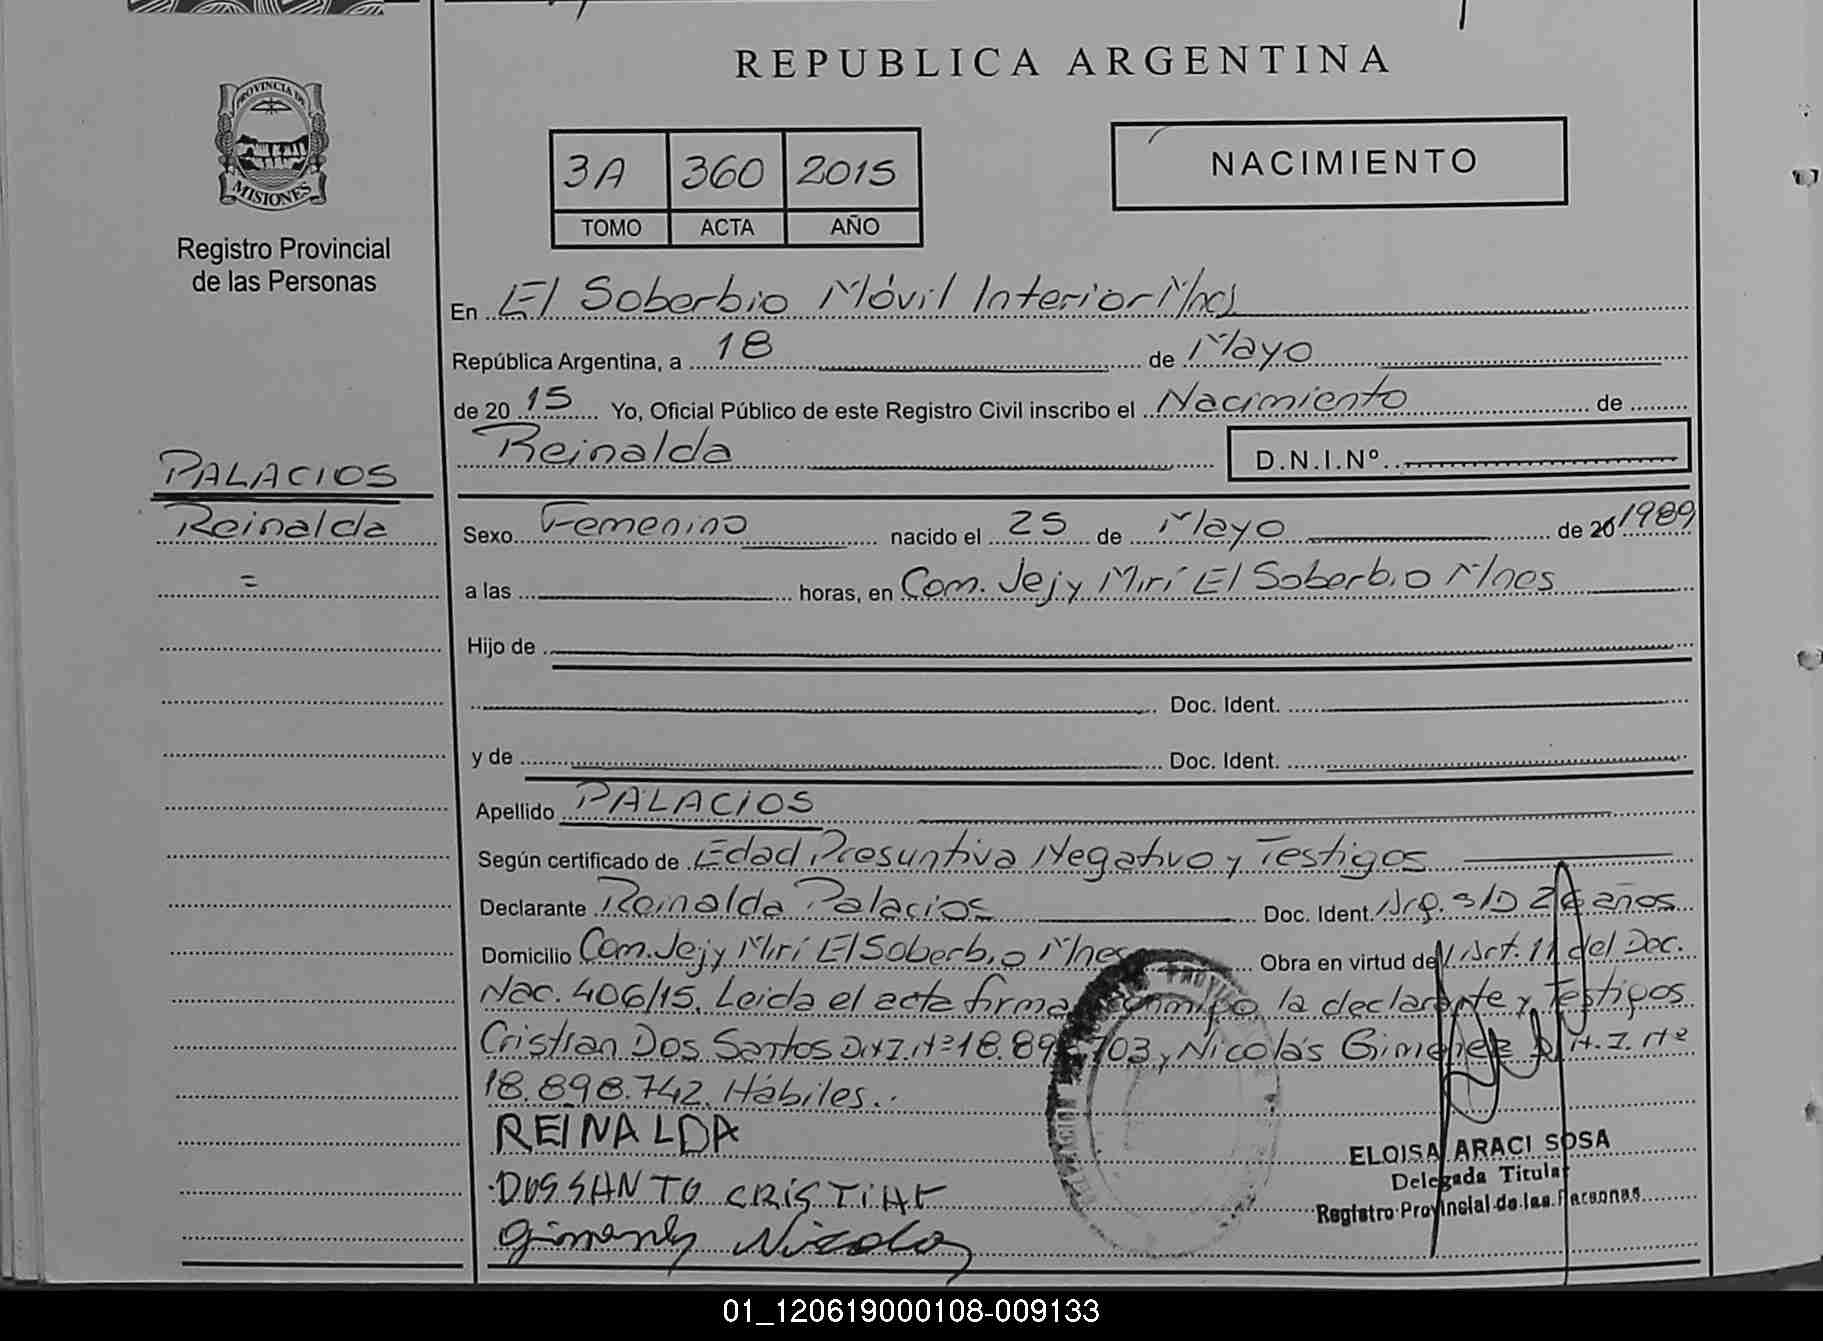 REPUBLICA ARGENTINA
PROVINCIA DE
MISIONES
Registro Provincial
de las Personas
3A 360 2015
TOMO ACTA AÑO
NACIMIENTO
En El Soberbio Móvil Interior Mnes
República Argentina, a 18 de Mayo
de 20 15 Yo, Oficial Público de este Registro Civil inscribo el Nacimiento de
Reinalda D.N.I.Nº
PALACIOS
Reinalda
Sexo Femenino nacido el 25 de Mayo de 20 1989
a las horas, en Com. Jejy Mirí El Soberbio Mnes
Hijo de
Doc. Ident.
y de Doc. Ident.
Apellido PALACIOS
Según certificado de Edad Presuntiva Negativo y Testigos
Declarante Reinalda Palacios Doc. Ident. Arg. s/D 26 años
Domicilio Com. Jejy Mirí El Soberbio Mnes Obra en virtud del Art. 11 del Dec.
Nac. 406/15. Leida el acta firma conmigo la declarante y Testigos
Cristian Dos Santos D.N.I. Nº 18.898.703 y Nicolás Gimenez D.N.I. Nº
18.898.742. Hábiles.
REINALDA
DOSSANTO CRISTIAN
Gimenez Nicolas
ELOISA ARACI SOSA
Delegada Titular
Registro Provincial de las Personas
01_120619000108-009133